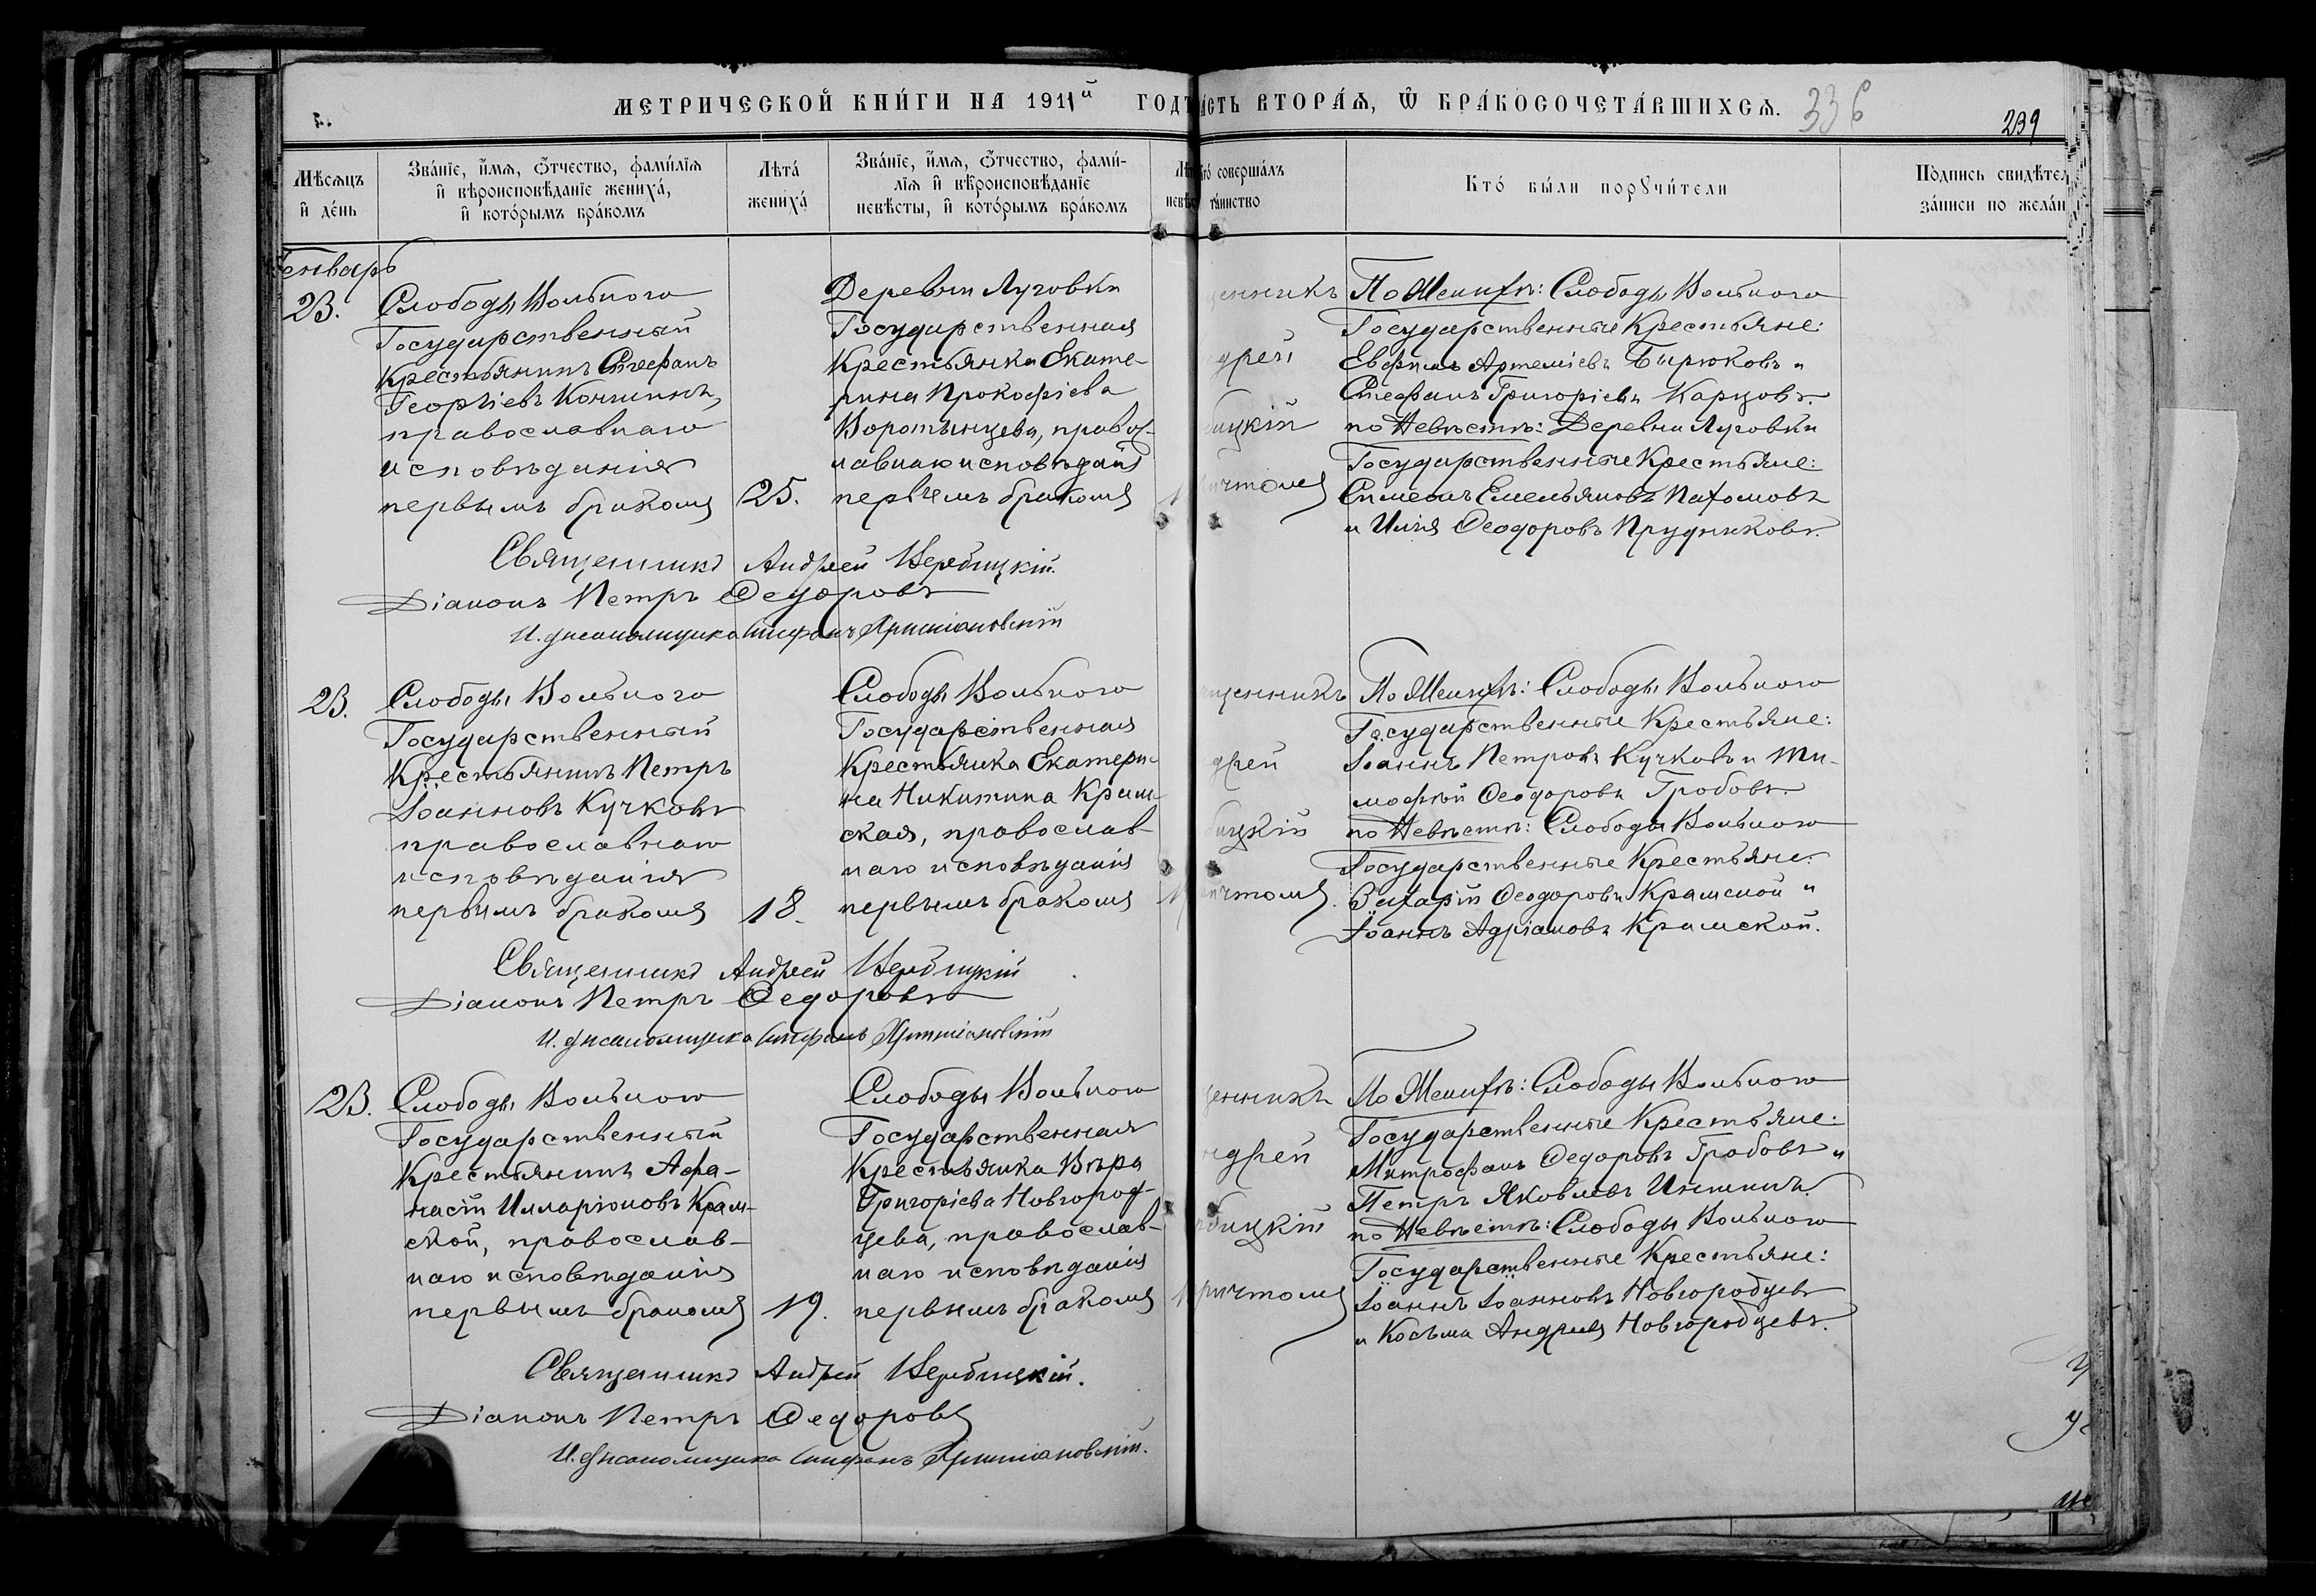 МЕТРИЧЕСКОЙ КНИ́ГИ НА 1911й ГОДЪ
ЧАСТЬ ВТОРА́Я, Ѡ БРА́КОСОЧЕТА́ВШИХСЯ.
336
239
Мѣсяцъ и де́нь
Зва́нїе, и́мя, ѻ́тчество, фами́лїя
и҆ вѣроисповѣ́данїе жениха́,
и҆ кото́рымъ бра́комъ
Лѣта́
жениха́
Зва́нїе, и́мя, ѻ́тчество, фами́-
лїя и҆ вѣроисповѣ́данїе
невѣ́сты, и҆ кото́рымъ бра́комъ
совершáлъ
та́инство
Кто́ бы́ли порꙋчи́тели
По́дпись свидѣ́тел
за́писи по жела́н
Генварь
23.
Слободы Вольного
Государственный
Крестьянинъ Стефанъ
Георгіевъ
православнаго
исповѣданія
первымъ бракомъ
25.
Деревни Луговки
Государственная
Крестьянка Екате-
рина Прокофіева
Воротынцева, правос-
лавнаго исповѣданія
первымъ бракомъ
щенникъ
дрей
бицкій
ричтомъ
По Женихѣ: Слободы Вольного
Государственные Крестьяне:
Евфимъ Артеміевъ Бирюковъ и
Стефанъ Григоріевъ Карцовъ.
по Невѣстѣ: Деревни Луговки
Государственные Крестьяне:
Симеонъ Емельяновъ Пахомовъ
и Илія Ѳеодоровъ Прудниковъ.
Священникъ Андрей Вербицкій.
Діаконъ Петръ Ѳедоровъ
И. д. псаломщика Стефанъ
23.
Слободы Вольного
Государственный
Крестьянинъ Петръ
Іоанновъ Кучковъ
православнаго
исповѣданія
первымъ бракомъ
18.
Слободы Вольного
Государственная
Крестьянка Екатери-
на Никитина Крам-
ская, православ-
наго исповѣданія
первымъ бракомъ
щенникъ
дрей
бицкій
ричтомъ.
По Женихѣ: Слободы Вольного
Государственные Крестьяне:
Іоаннъ Петровъ Кучковъ и Ти-
мофей Ѳеодоровъ Гробовъ.
по Невѣстѣ: Слободы Вольного
Государственные Крестьяне:
Захарій Ѳеодоровъ Крамской и
Іоаннъ Адріановъ Крамской.
Священникъ Андрей Вербицкій
Діаконъ Петръ Ѳедоровъ
И. д. псаломщика Стефанъ
23.
Слободы Вольного
Государственный
Крестьянинъ Афа-
насій Илларіоновъ Крам-
ской, православ-
наго исповѣданія
первымъ бракомъ
19.
Слободы Вольного
Государственная
Крестьянка Вѣра
Григоріева Новгород-
цева, православ-
наго исповѣданія
первымъ бракомъ
щенникъ
ндрей
бицкій
ричтомъ
По Женихѣ: Слободы Вольного
Государственные Крестьяне:
Митрофанъ Ѳедоровъ Гробовъ и
Петръ Яковлевъ Иншинъ.
по Невѣстѣ: Слободы Вольного
Государственные Крестьяне:
Іоаннъ Іоанновъ Новгородцевъ
и Косьма Андреевъ Новгородцевъ.
Священникъ Андрей Вербицкій.
Діаконъ Петръ Ѳедоровъ
И. д. псаломщика Стефанъ